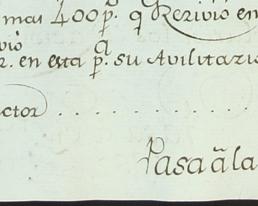 mas 400 p.^s q Rerivió en
vió
r. en esta p.^a su Avilitazio
ctor . . . . . . . . . . .
Pasa â la